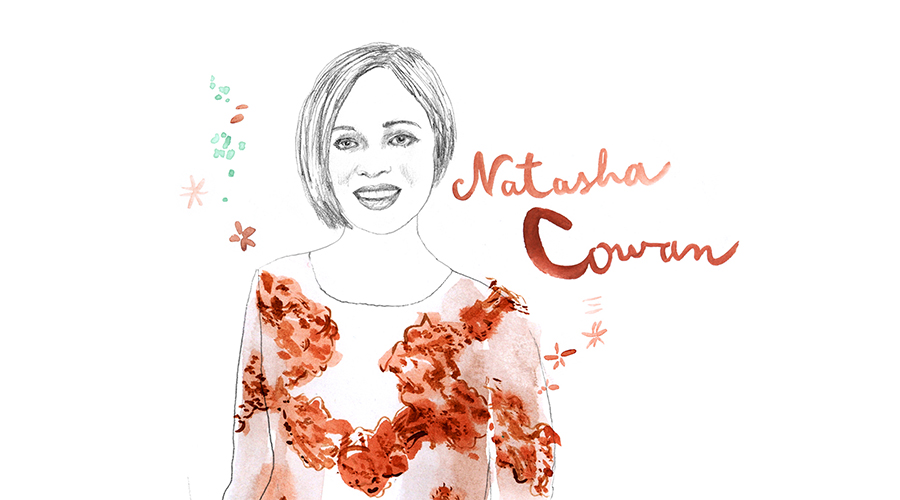 Natasha
Cowan